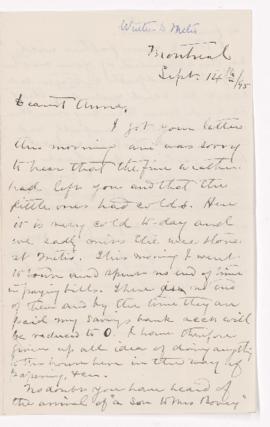 Written to Metis
Montreal
Sept. 14th/95
Dearest Anna,
I got your letter
this morning and was sorry
to hear that the fine weather
had left you and that the
little ones had colds. Here
it is very cold to-day and
we sadly miss the wee stove
at Metis. This morning I went
to town and spent no end of time
in paying bills. There is no end
of them and by the time they are
paid my Savings bank acct will
be reduced to 0. I have therefore
given up all idea of doing anything
to this house here in the way of
papering, &c.
No doubt you have heard of
the arrival of "a son to Mrs